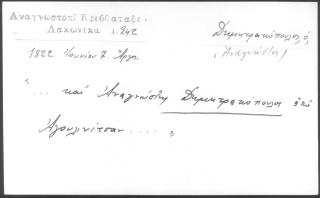 Αναγνωστοπ Κρεββαταδε.
Λακωνικα ι.242
Δημητρακόπουλος ὁ
(Ἀναγνώστης)
1822 Ἰουνίου 7. Ἄργος
"... καὶ Ἀναγνώστης Δημητρακόπουλος ἀπό
Ἀγουλινίτσαν .... "